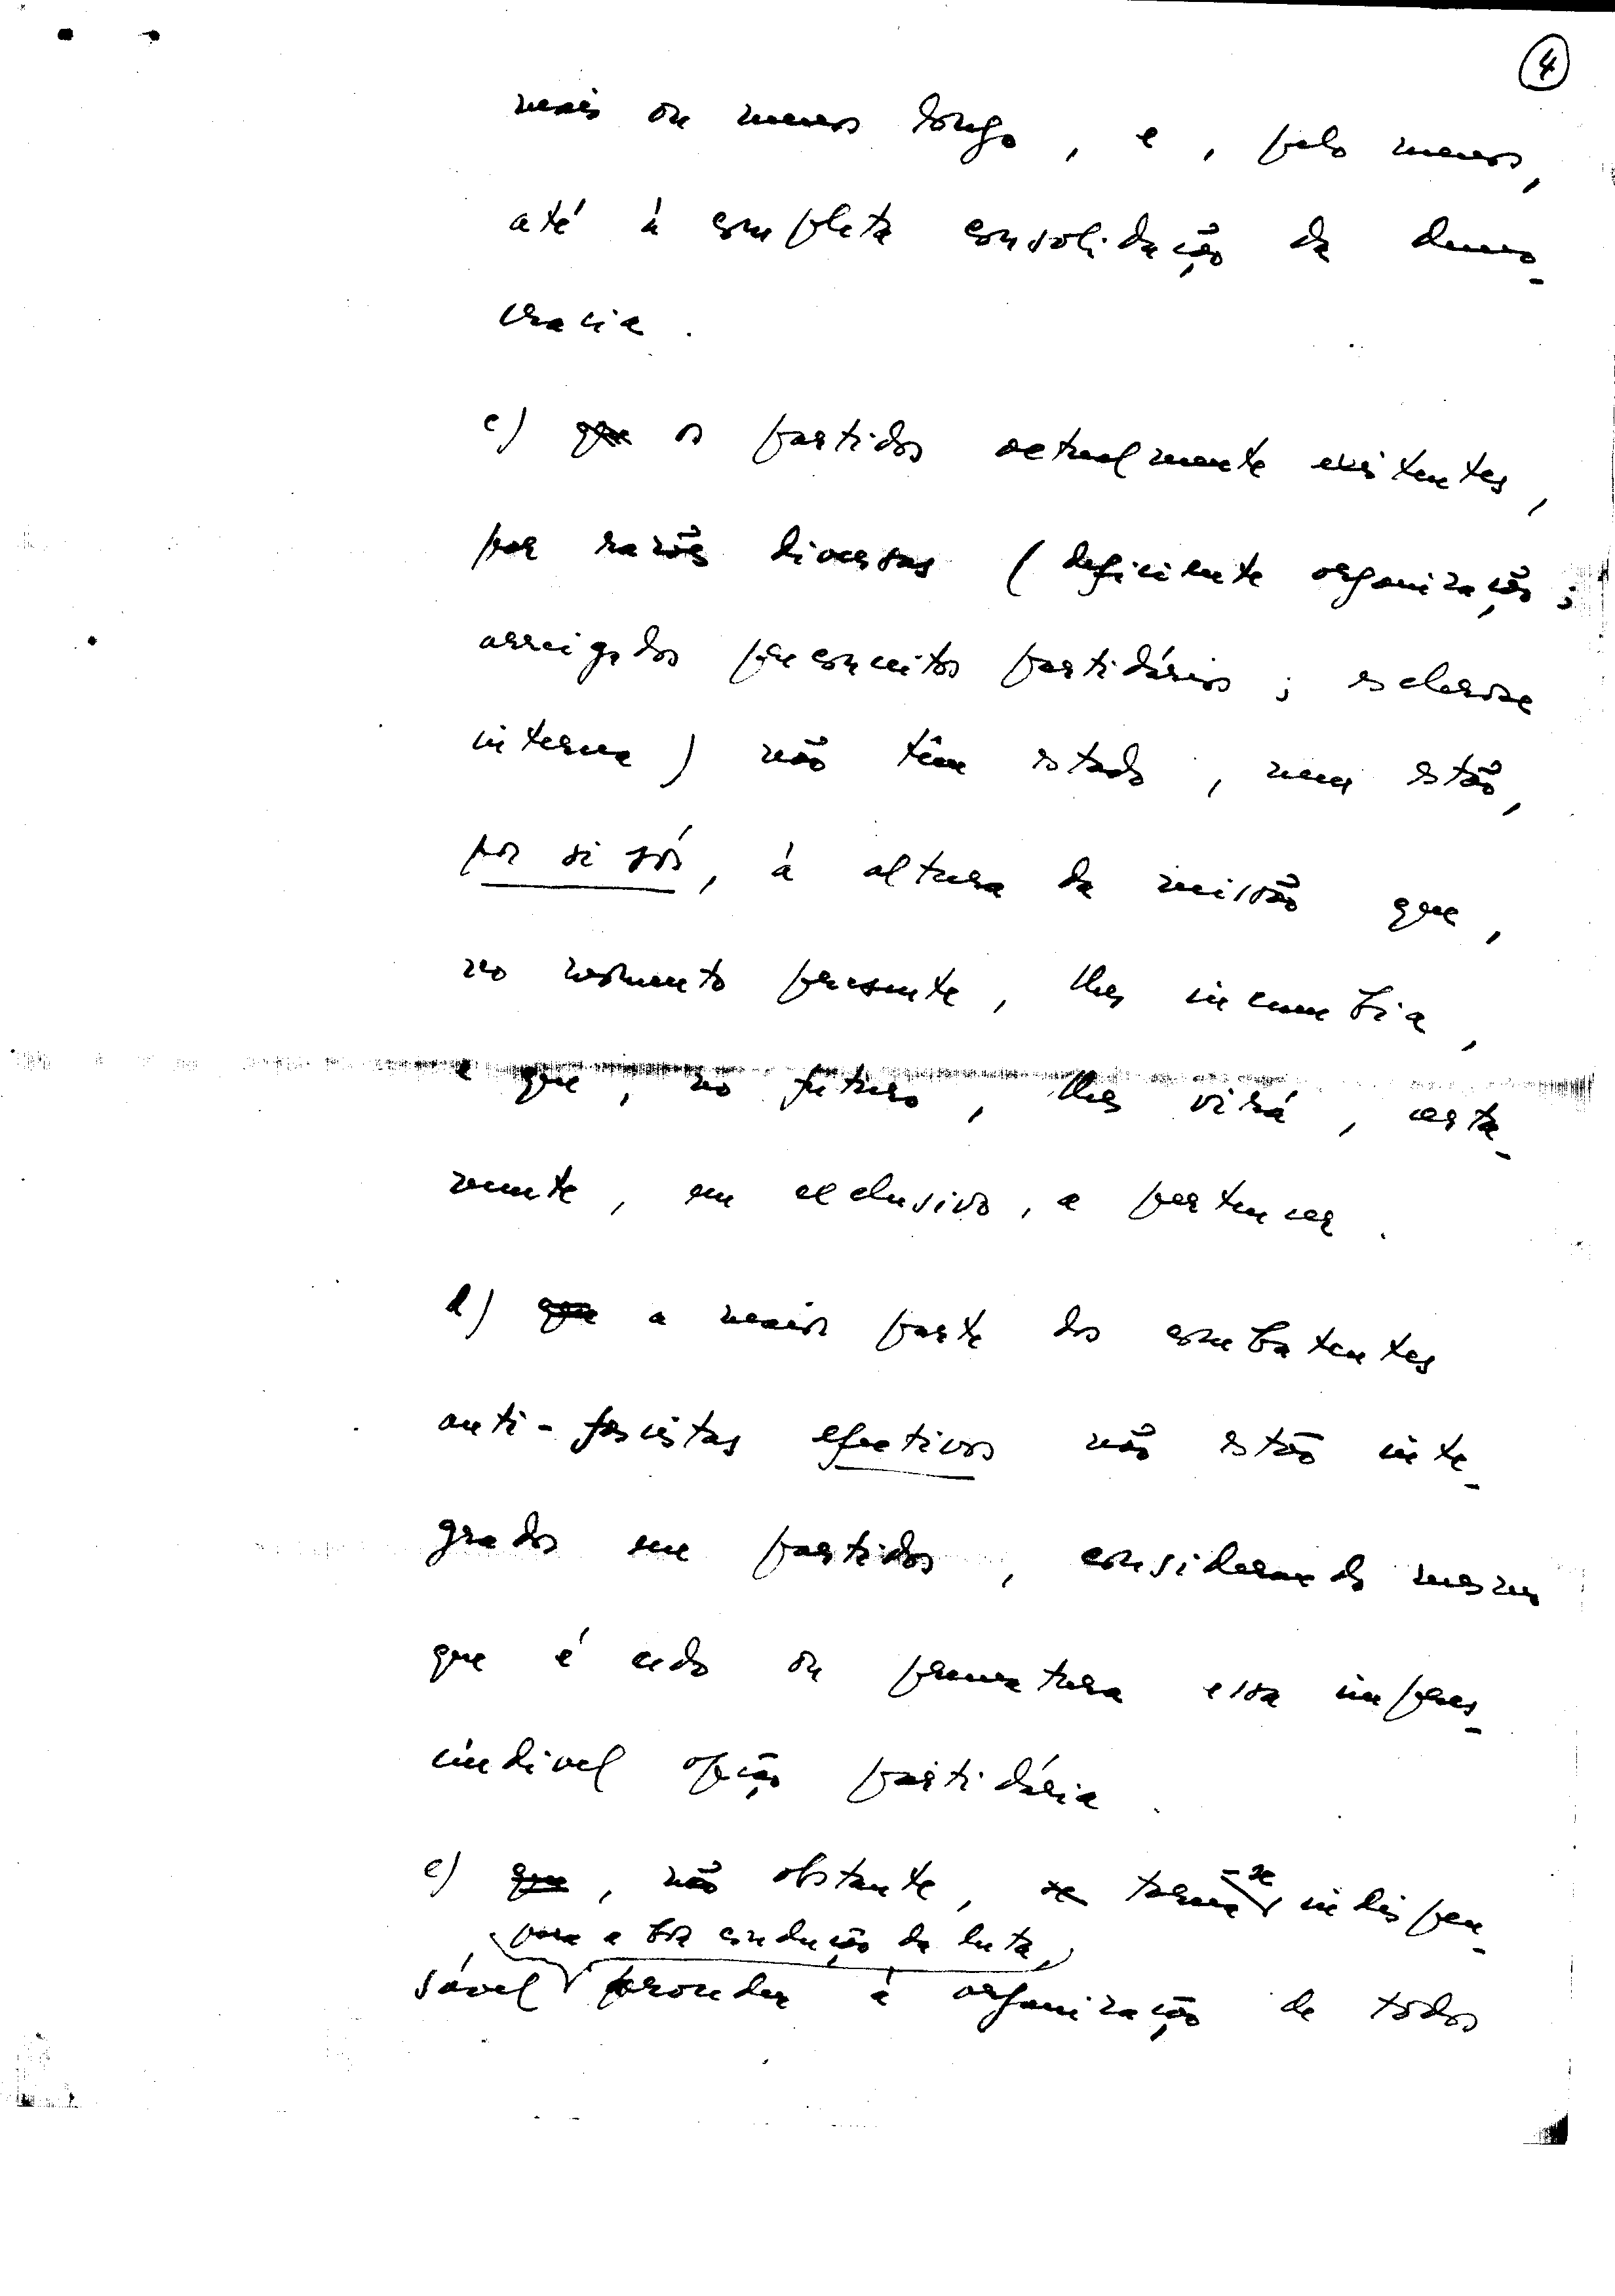 4
mais ou menos longo, e, pelo menos,
até à completa consolidação da demo-
cracia.
c) que os partidos actualmente existentes,
por razões diversas (deficiente organização;
arreigados preconceitos partidários; esclerose
interna) não têm estado, nem estão,
por si sós, à altura da missão que,
no momento presente, lhes incumbia,
e que, no futuro, lhes virá, certa-
mente, em exclusivo, a pertencer.
d) que a maior parte dos combatentes
anti-fascistas efectivos não estão inte-
grados em partidos, considerando mesmo
que é cedo ou prematura essa impres-
cindível opção partidária.
e) que, não obstante, se torna-se indispen-
para a boa condução da luta,
sável proceder à organização de todos